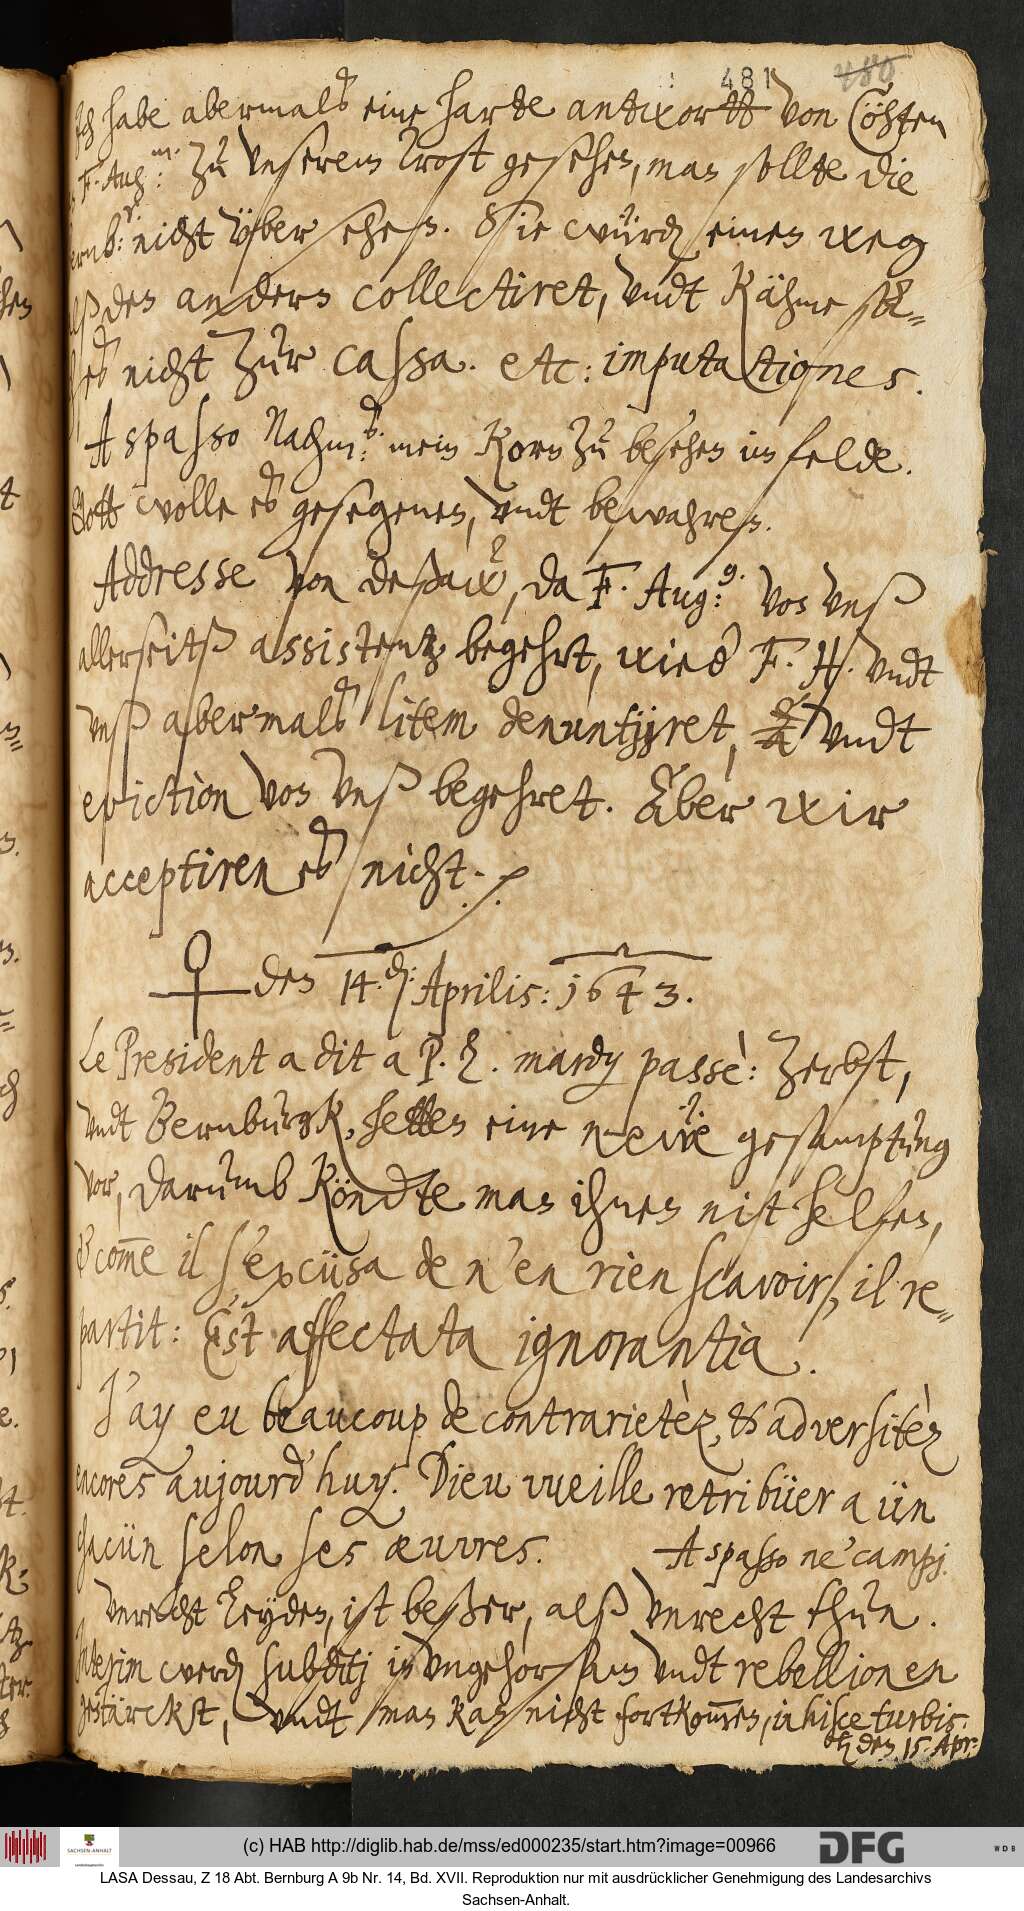 481 480
Ich habe abermalß eine harte antwortt von Cöhten
F. Aug:m. zu unserem Trost gesehen, man sollte die
Bernb:r. nicht über sehen. Sie würden einen weg
alß den andern collectiret, undt kähme sol-
ches nicht zur cassa. etc: imputationes.
A spasso Nachm:s. mein Korn zu besehen im felde.
Gott wolle es gesegenen, undt bewahren.
Addresse von Deßaw, da F. Aug:g. von unß
allerseitß assistentz begehrt, wieder F. H. undt
unß abermalß litem denuntijret, undt
eviction von unß begehret. Aber wir
acceptiren es nicht. ./.
♀ den 14. den: Aprilis: 1643.
Le President a dit a P. h. mardy passè: Zerbst,
undt Bernburgk, hetten eine newe gesampthung
vor, darumb köndte man ihnen nit helfen,
& come il s'excüsa de n'en rien scavoir, il re-
partit: Est affectata ignorantia.
J'ay eu beaucoup de contrarietèz, & adversitèz
encores aujourd'huy. Dieu vueille retribüer a ün
chacün selon ses œuvres. A spasso ne' campj.
Unrecht leyden, ist beßer, alß unrecht thun.
Interim werden subditj in ungehorsam undt rebellionen
gestärckt, undt man kan nicht fortkommen, in hisce turbis.
den 15. Apr:
(c) HAB http://diglib.hab.de/mss/ed000235/start.htm?image=00966
SACHSEN-ANHALT
DFG
WDB
LASA Dessau, Z 18 Abt. Bernburg A 9b Nr. 14, Bd. XVII. Reproduktion nur mit ausdrücklicher Genehmigung des Landesarchivs
Sachsen-Anhalt.